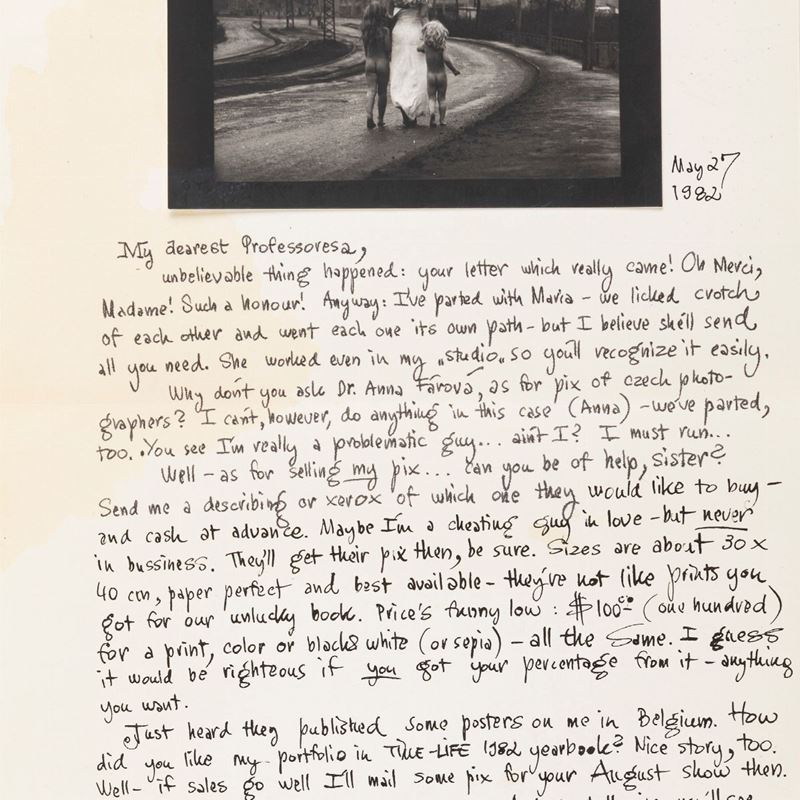 May 27
1982
My dearest Professoresa,
unbelievable thing happened: your letter which really came! Oh Merci,
Madame! Such a honour! Anyway: I've parted with Maria – we licked crotch
of each other and went each one its own path – but I believe she'll send
all you need. She worked even in my „studio„ so you'll recognize it easily.
Why don't you ask Dr. Anna Fárová, as for pix of czech photo-
graphers? I can't, however, do anything in this case (Anna) – we've parted,
too. You see I'm really a problematic guy... ain't I? I must run...
Well – as for selling my pix... can you be of help, sister?
Send me a describing or xerox of which one they would like to buy –
and cash at advance. Maybe I'm a cheating guy in love – but never
in bussiness. They'll get their pix then, be sure. Sizes are about 30 x
40 cm, paper perfect and best available – they've not like prints you
got for our unlucky book. Price's funny low : $ 100 (one hundred)
for a print, color or black & white (or sepia) – all the same. I guess
it would be righteous if you got your percentage from it – anything
you want.
Just heard they published some posters on me in Belgium. How
did you like my portfolio in TIME-LIFE 1982 yearbook? Nice story, too.
Well – if sales go well I'll mail some pix for your August show then.